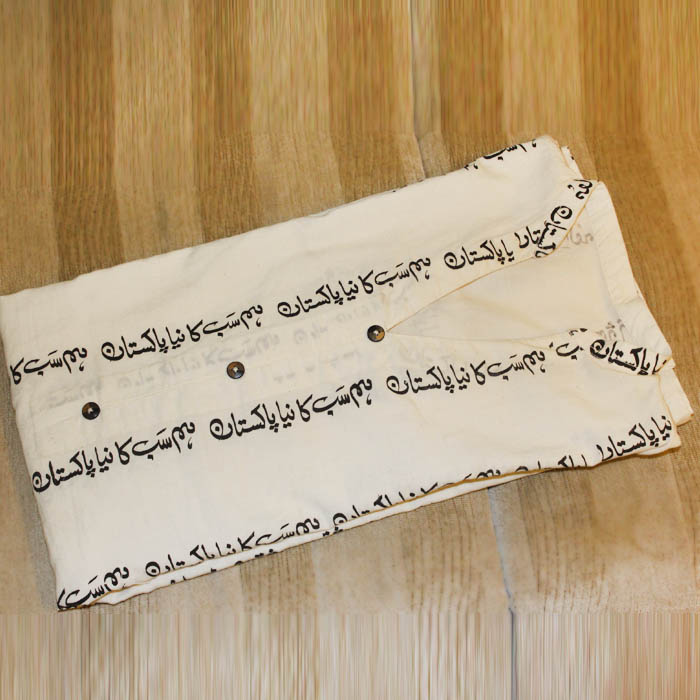 ہم سَب کا نیا پاکستان ہم سَب کا نیا پاکستان ہم سَب کا
یا پاکستان
ہم سَب کا نیا پاکستان ہم سَب کا نیا پاکستان ہم سَب کا نیا پاکستان
نیا پاکستان
ہم سَب کا نیا پاکستان ہم سَب